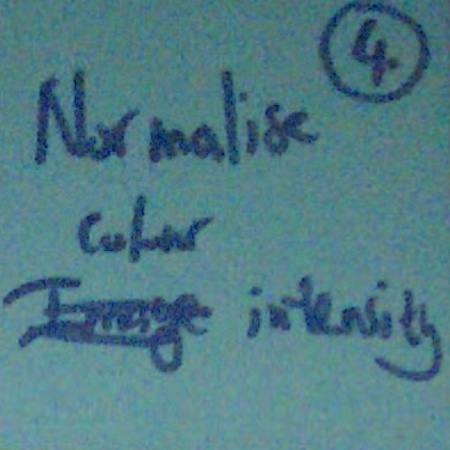 4.
Normalise
Colour
Image intensity